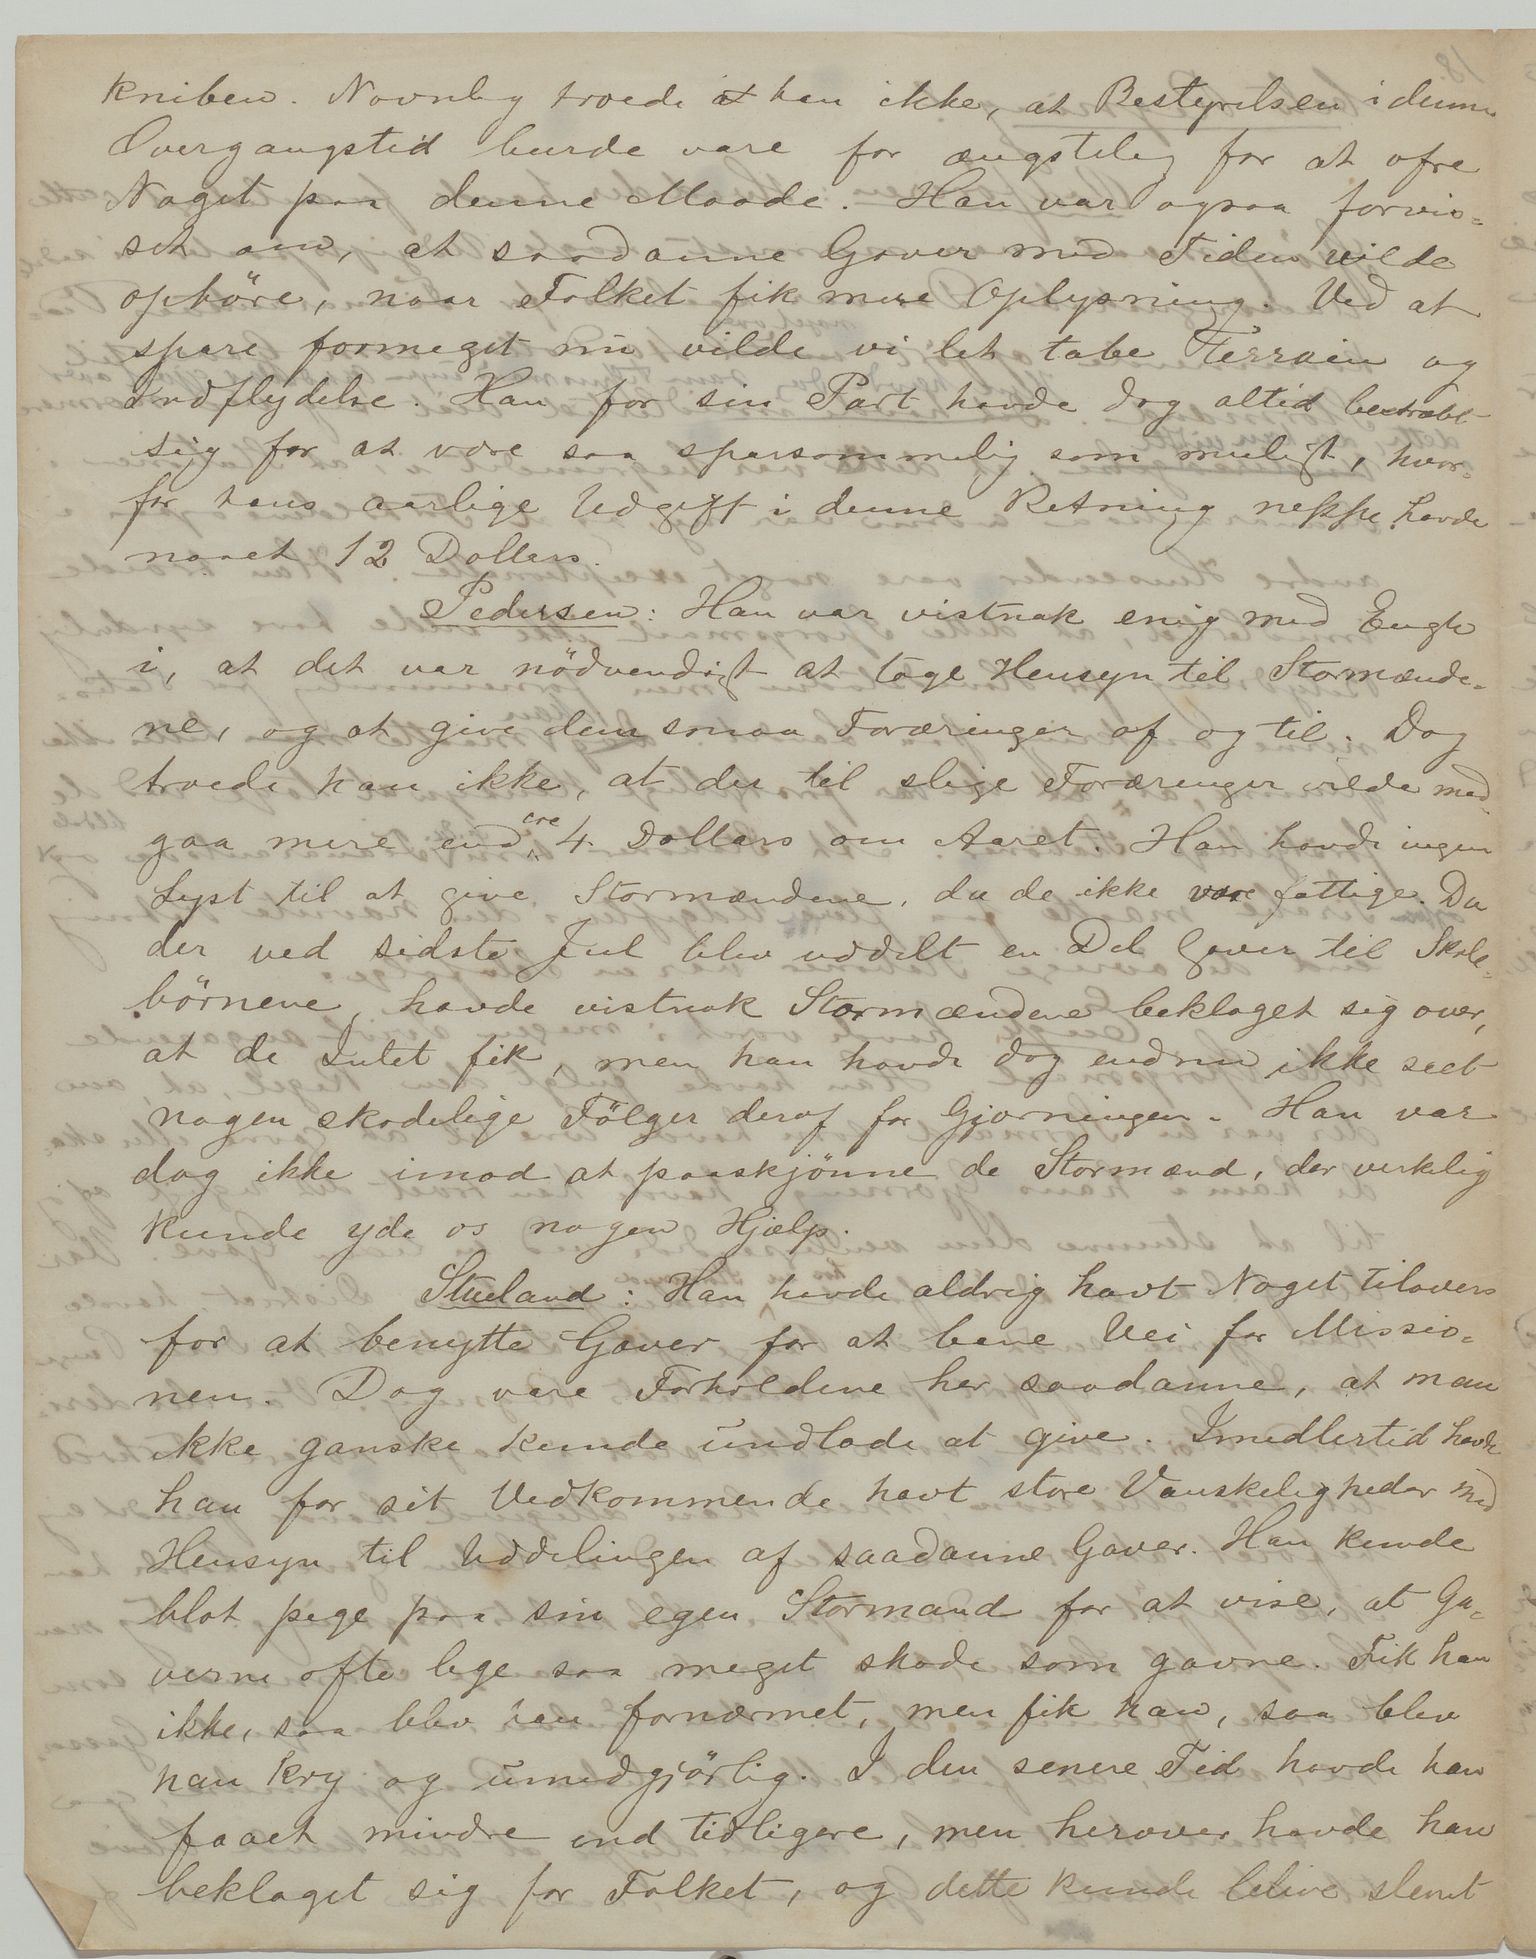 kniben. Navnlig troede han ikke, at Bestyrelsen i denne
Overgangstid burde være for ængstelig for at ofre
Noget paa denne Maade. Han var ogsaa forvis-
set om, at saadanne Gaver med Tiden vilde
ophöre, naar Folket fik mere Oplysning. Ved at
spare formeget nu vilde vi let tabe Terrain og
Indflydelse. Han for sin Part havde dog altid bestræbt
sig for at være saa sparsommelig som muligt, hvor-
for hans aarlige Udgift i denne Retning neppe havde
naaet 12 Dollars.
Pedersen: Han var vistnok enig med Engh
i, at det var nödvendigt at tage Hensyn til Stormænde-
ne, og at give dem smaa Foræringer af og til. Dog
troede han ikke, at der til slige Foræringer vilde med-
gaa mere end cre 4 Dollars om Aaret. Han havde ingen
Lyst til at give Stormændene, da de ikke vare fattige. Da
der ved sidste Jul blev uddelt en Del Gaver til Skole-
börnene, havde vistnok Stormændene beklaget sig over,
at de Intet fik, men han havde dog endnu ikke seet
nogen skadelige Fölger deraf for Gjerningen. Han var
dog ikke imod at paaskjönne de Stormænd, der verkelig
kunde yde os nogen Hjælp.
Stueland: Han havde aldrig havt Noget tilovers
for at benytte Gaver for at bane Vei for Missio-
nen. Dog vare Forholdene her saadanne, at man
ikke ganske kunde undlade at give. Imidlertid havde
han for sit Vedkommende havt store Vanskeligheder med
Hensyn til Uddelingen af saadanne Gaver. Han kunde
blot pege paa sin egen Stormand for at vise, at Ga-
verne ofte lige saa meget skade som gavne. Fik han
ikke, saa blev han fornærmet, men fik han, saa blev
han kry og umedgjörlig. I den senere Tid havde han
faaet mindre end tidligere, men herover havde han
beklaget sig for Folket, og dette kunde blive slemt